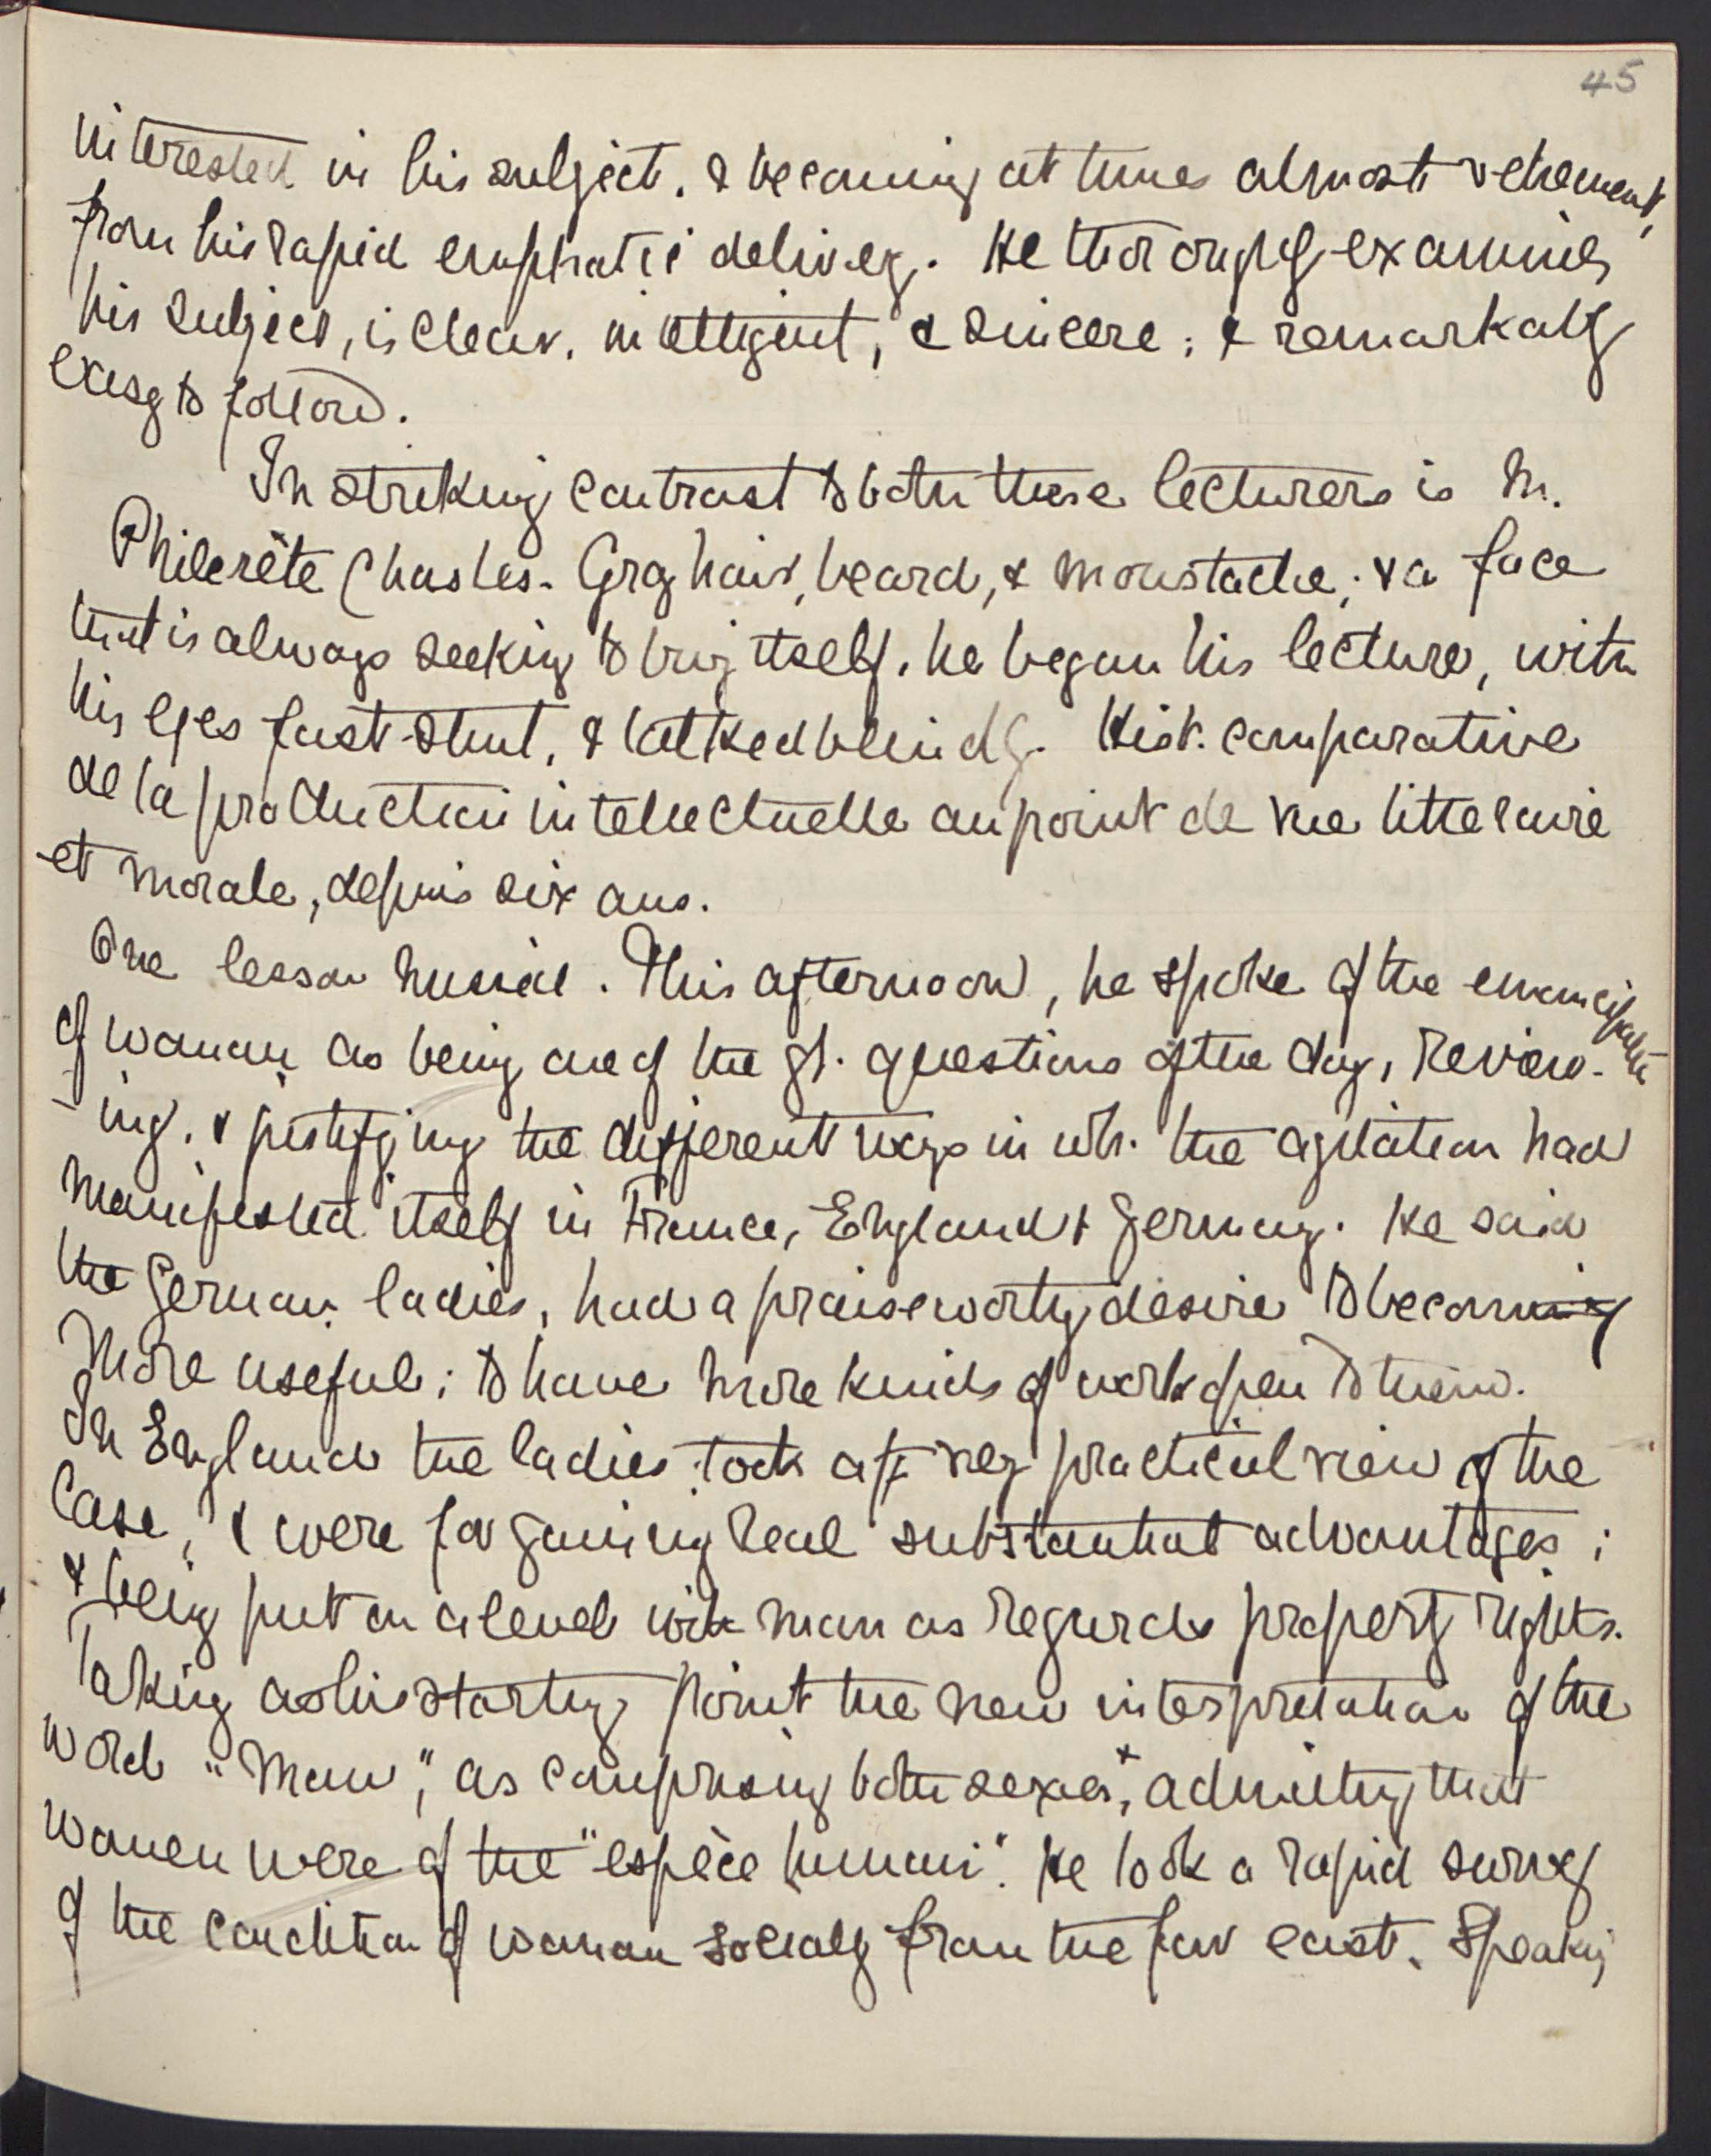 45
interested in his subject, & becoming at times almost vehement,
from his rapid emphatic delivery. He thoroughly examines
his subject, is clear, intelligent, & sincere; & remarkably
easy to follow.
In striking contrast to both these lecturers is M.
Philerête Chasles. Gray hair, beard, & moustache; & a face
that is always seeking to itself, he began his lecture, with
his eyes fast shut, & talked blindly. Hist. comparative
de la production intellectuelle au point de vue litteraire
et morale, depuis six ans.
One lesson missed. This afternoon, he spoke of the emancipation
of woman as being one of the gt. questions of the day, review-
-ing, & justifying the different ways in wh. the agitation had
manifested itself in France, England & Germany. He said
the German ladies, had a praiseworthy desire to becoming
more useful; to have more kinds of work open to them.
In England the ladies took a very practical view of the
case, & were for gaining real substantial advantages;
& being put on a level with man as regards property rights.
Taking as his starting point the new interpretation of the
word "Man", as comprising both sexes, & admitting that
women were of the "espèce humain". He took a rapid survey
of the condition of woman socially from the far east. Speaking